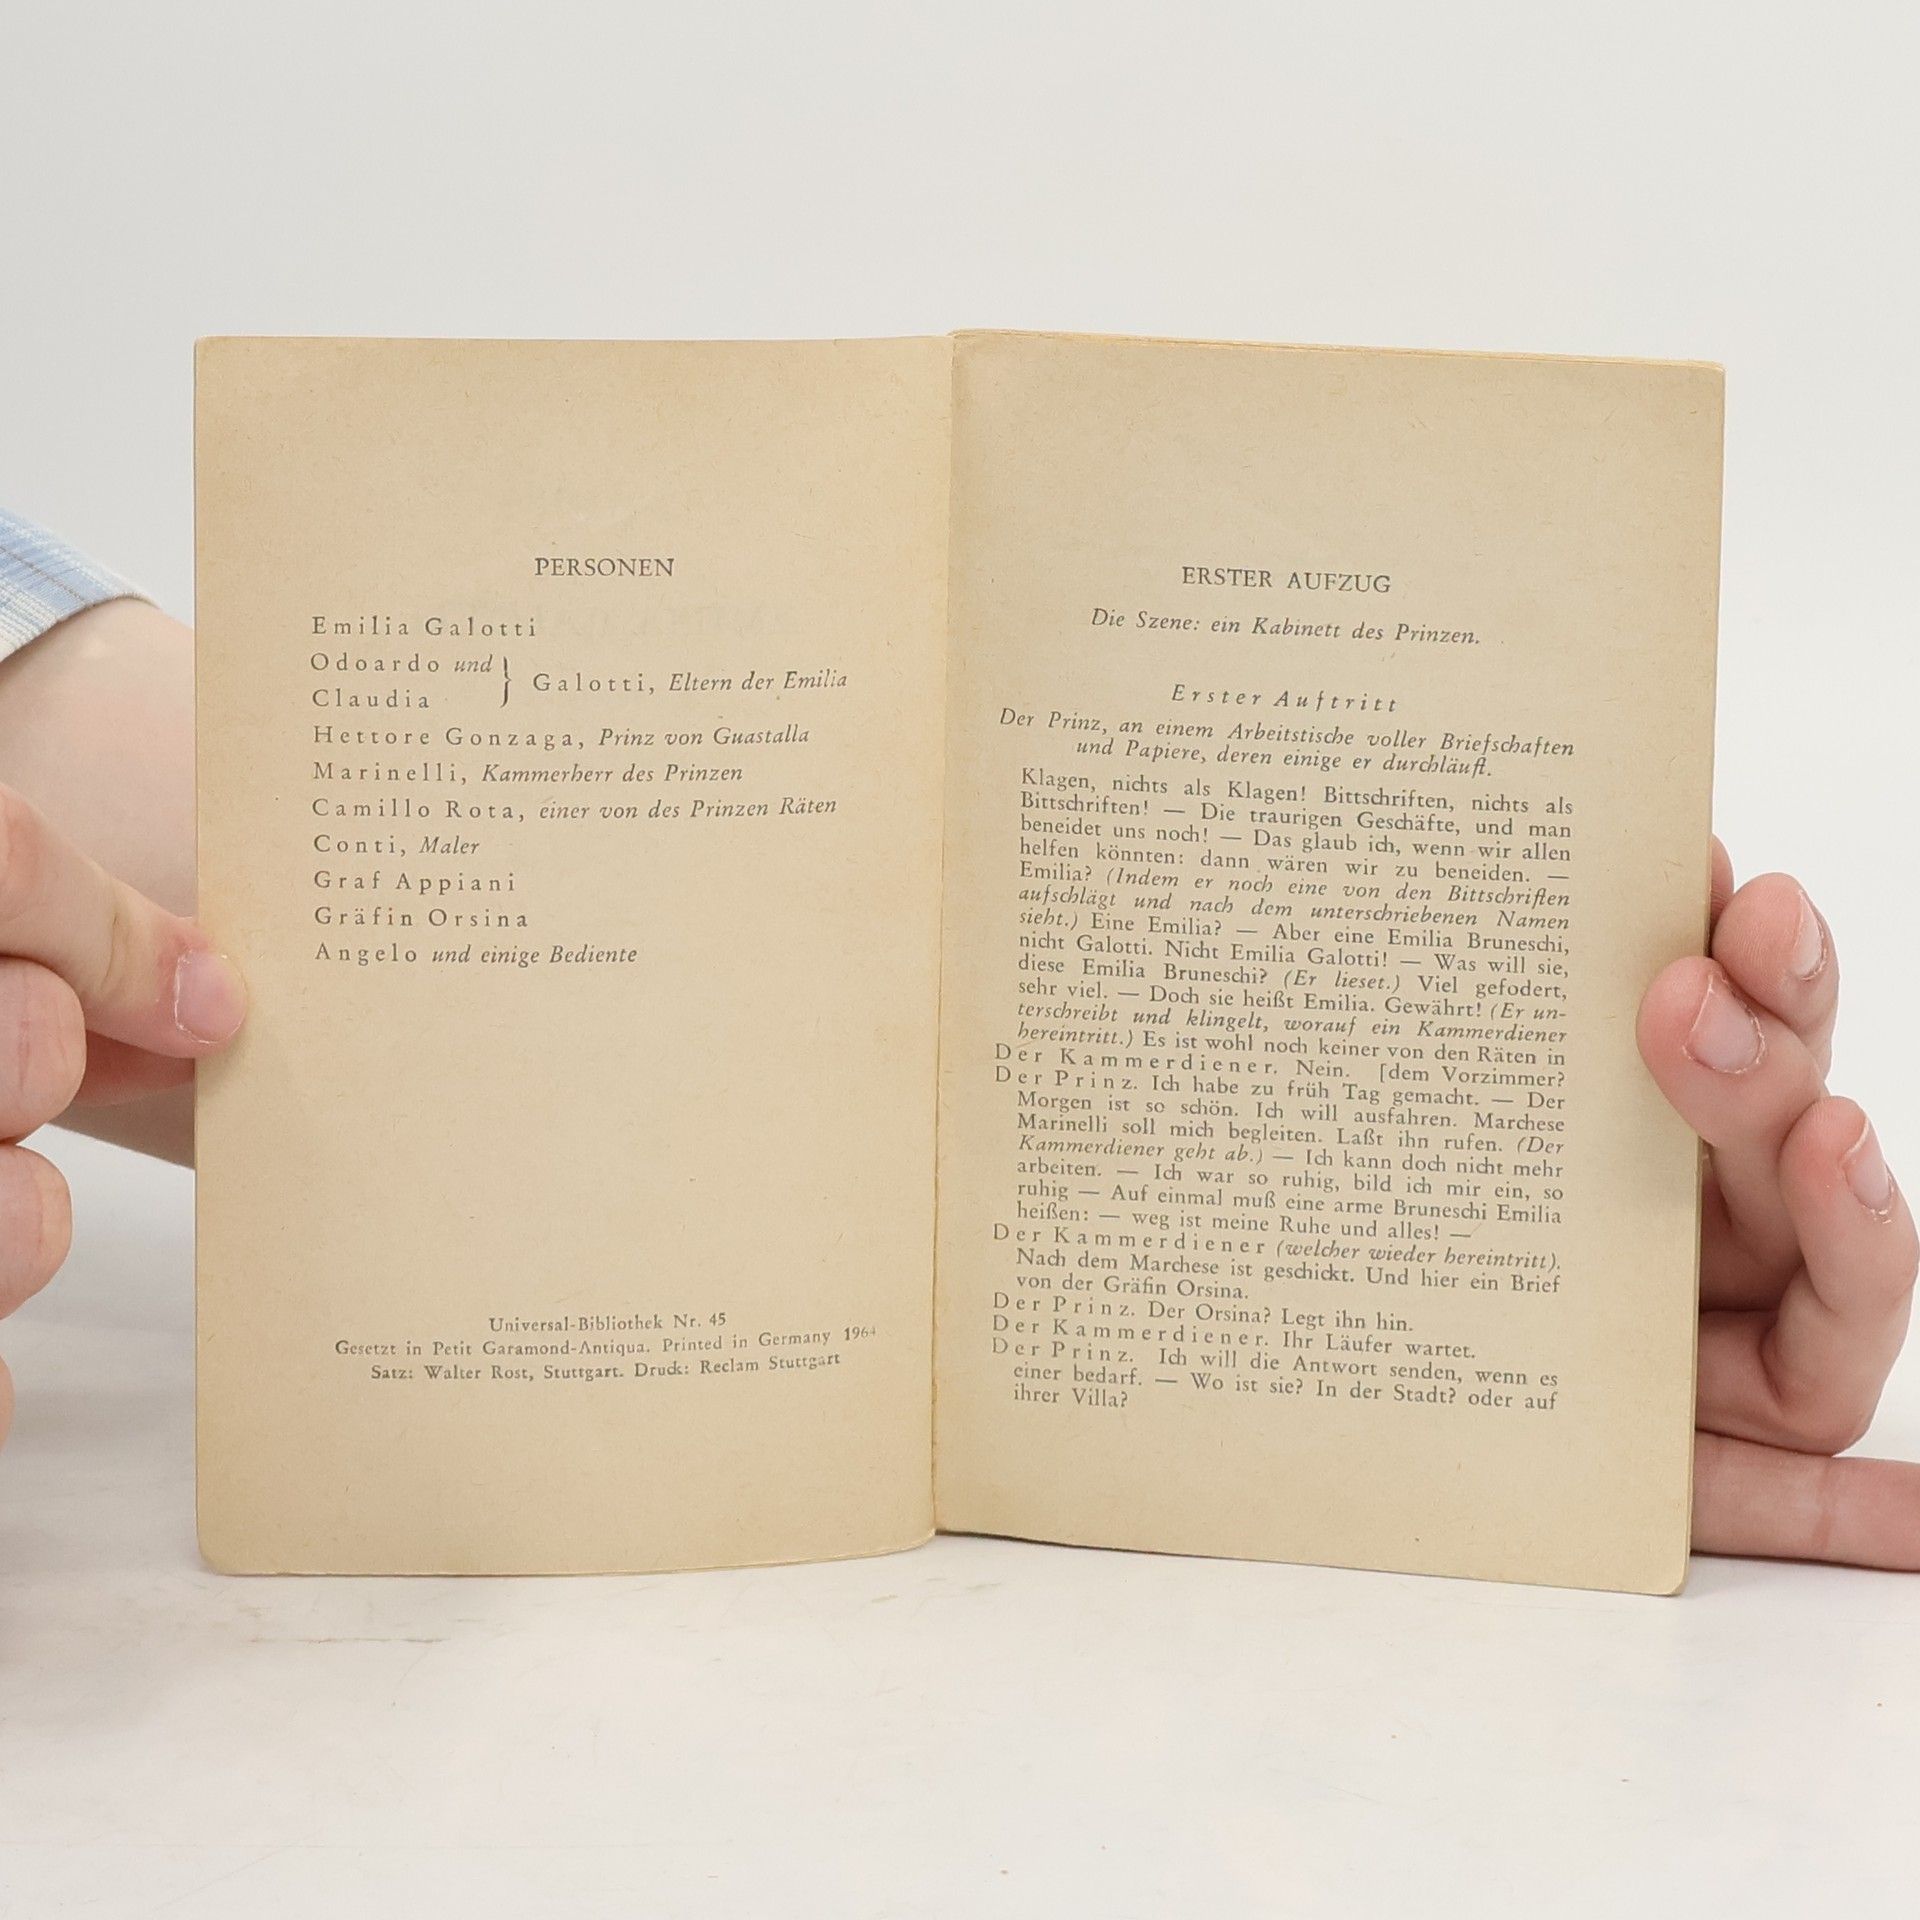 PERSONEN
Emilia Galotti
Odoardo und
Claudia } Galotti, Eltern der Emilia
Hettore Gonzaga, Prinz von Guastalla
Marinelli, Kammerherr des Prinzen
Camillo Rota, einer von des Prinzen Räten
Conti, Maler
Graf Appiani
Gräfin Orsina
Angelo und einige Bediente
Universal-Bibliothek Nr. 45
Gesetzt in Petit Garamond-Antiqua. Printed in Germany 1964
Satz: Walter Rost, Stuttgart. Druck: Reclam Stuttgart
ERSTER AUFZUG
Die Szene: ein Kabinett des Prinzen.
Erster Auftritt
Der Prinz, an einem Arbeitstische voller Briefschaften
und Papiere, deren einige er durchläuft.
Klagen, nichts als Klagen! Bittschriften, nichts als
Bittschriften! — Die traurigen Geschäfte, und man
beneidet uns noch! — Das glaub ich, wenn wir allen
helfen könnten: dann wären wir zu beneiden. —
Emilia? (Indem er noch eine von den Bittschriften
aufschlägt und nach dem unterschriebenen Namen
sieht.) Eine Emilia? — Aber eine Emilia Bruneschi,
nicht Galotti. Nicht Emilia Galotti! — Was will sie,
diese Emilia Bruneschi? (Er lieset.) Viel gefodert,
sehr viel. — Doch sie heißt Emilia. Gewährt! (Er un-
terschreibt und klingelt, worauf ein Kammerdiener
hereintritt.) Es ist wohl noch keiner von den Räten in
Der Kammerdiener. Nein. [dem Vorzimmer?
Der Prinz. Ich habe zu früh Tag gemacht. — Der
Morgen ist so schön. Ich will ausfahren. Marchese
Marinelli soll mich begleiten. Laßt ihn rufen. (Der
Kammerdiener geht ab.) — Ich kann doch nicht mehr
arbeiten. — Ich war so ruhig, bild ich mir ein, so
ruhig — Auf einmal muß eine arme Bruneschi Emilia
heißen: — weg ist meine Ruhe und alles! —
Der Kammerdiener (welcher wieder hereintritt).
Nach dem Marchese ist geschickt. Und hier ein Brief
von der Gräfin Orsina.
Der Prinz. Der Orsina? Legt ihn hin.
Der Kammerdiener. Ihr Läufer wartet.
Der Prinz. Ich will die Antwort senden, wenn es
einer bedarf. — Wo ist sie? In der Stadt? oder auf
ihrer Villa?